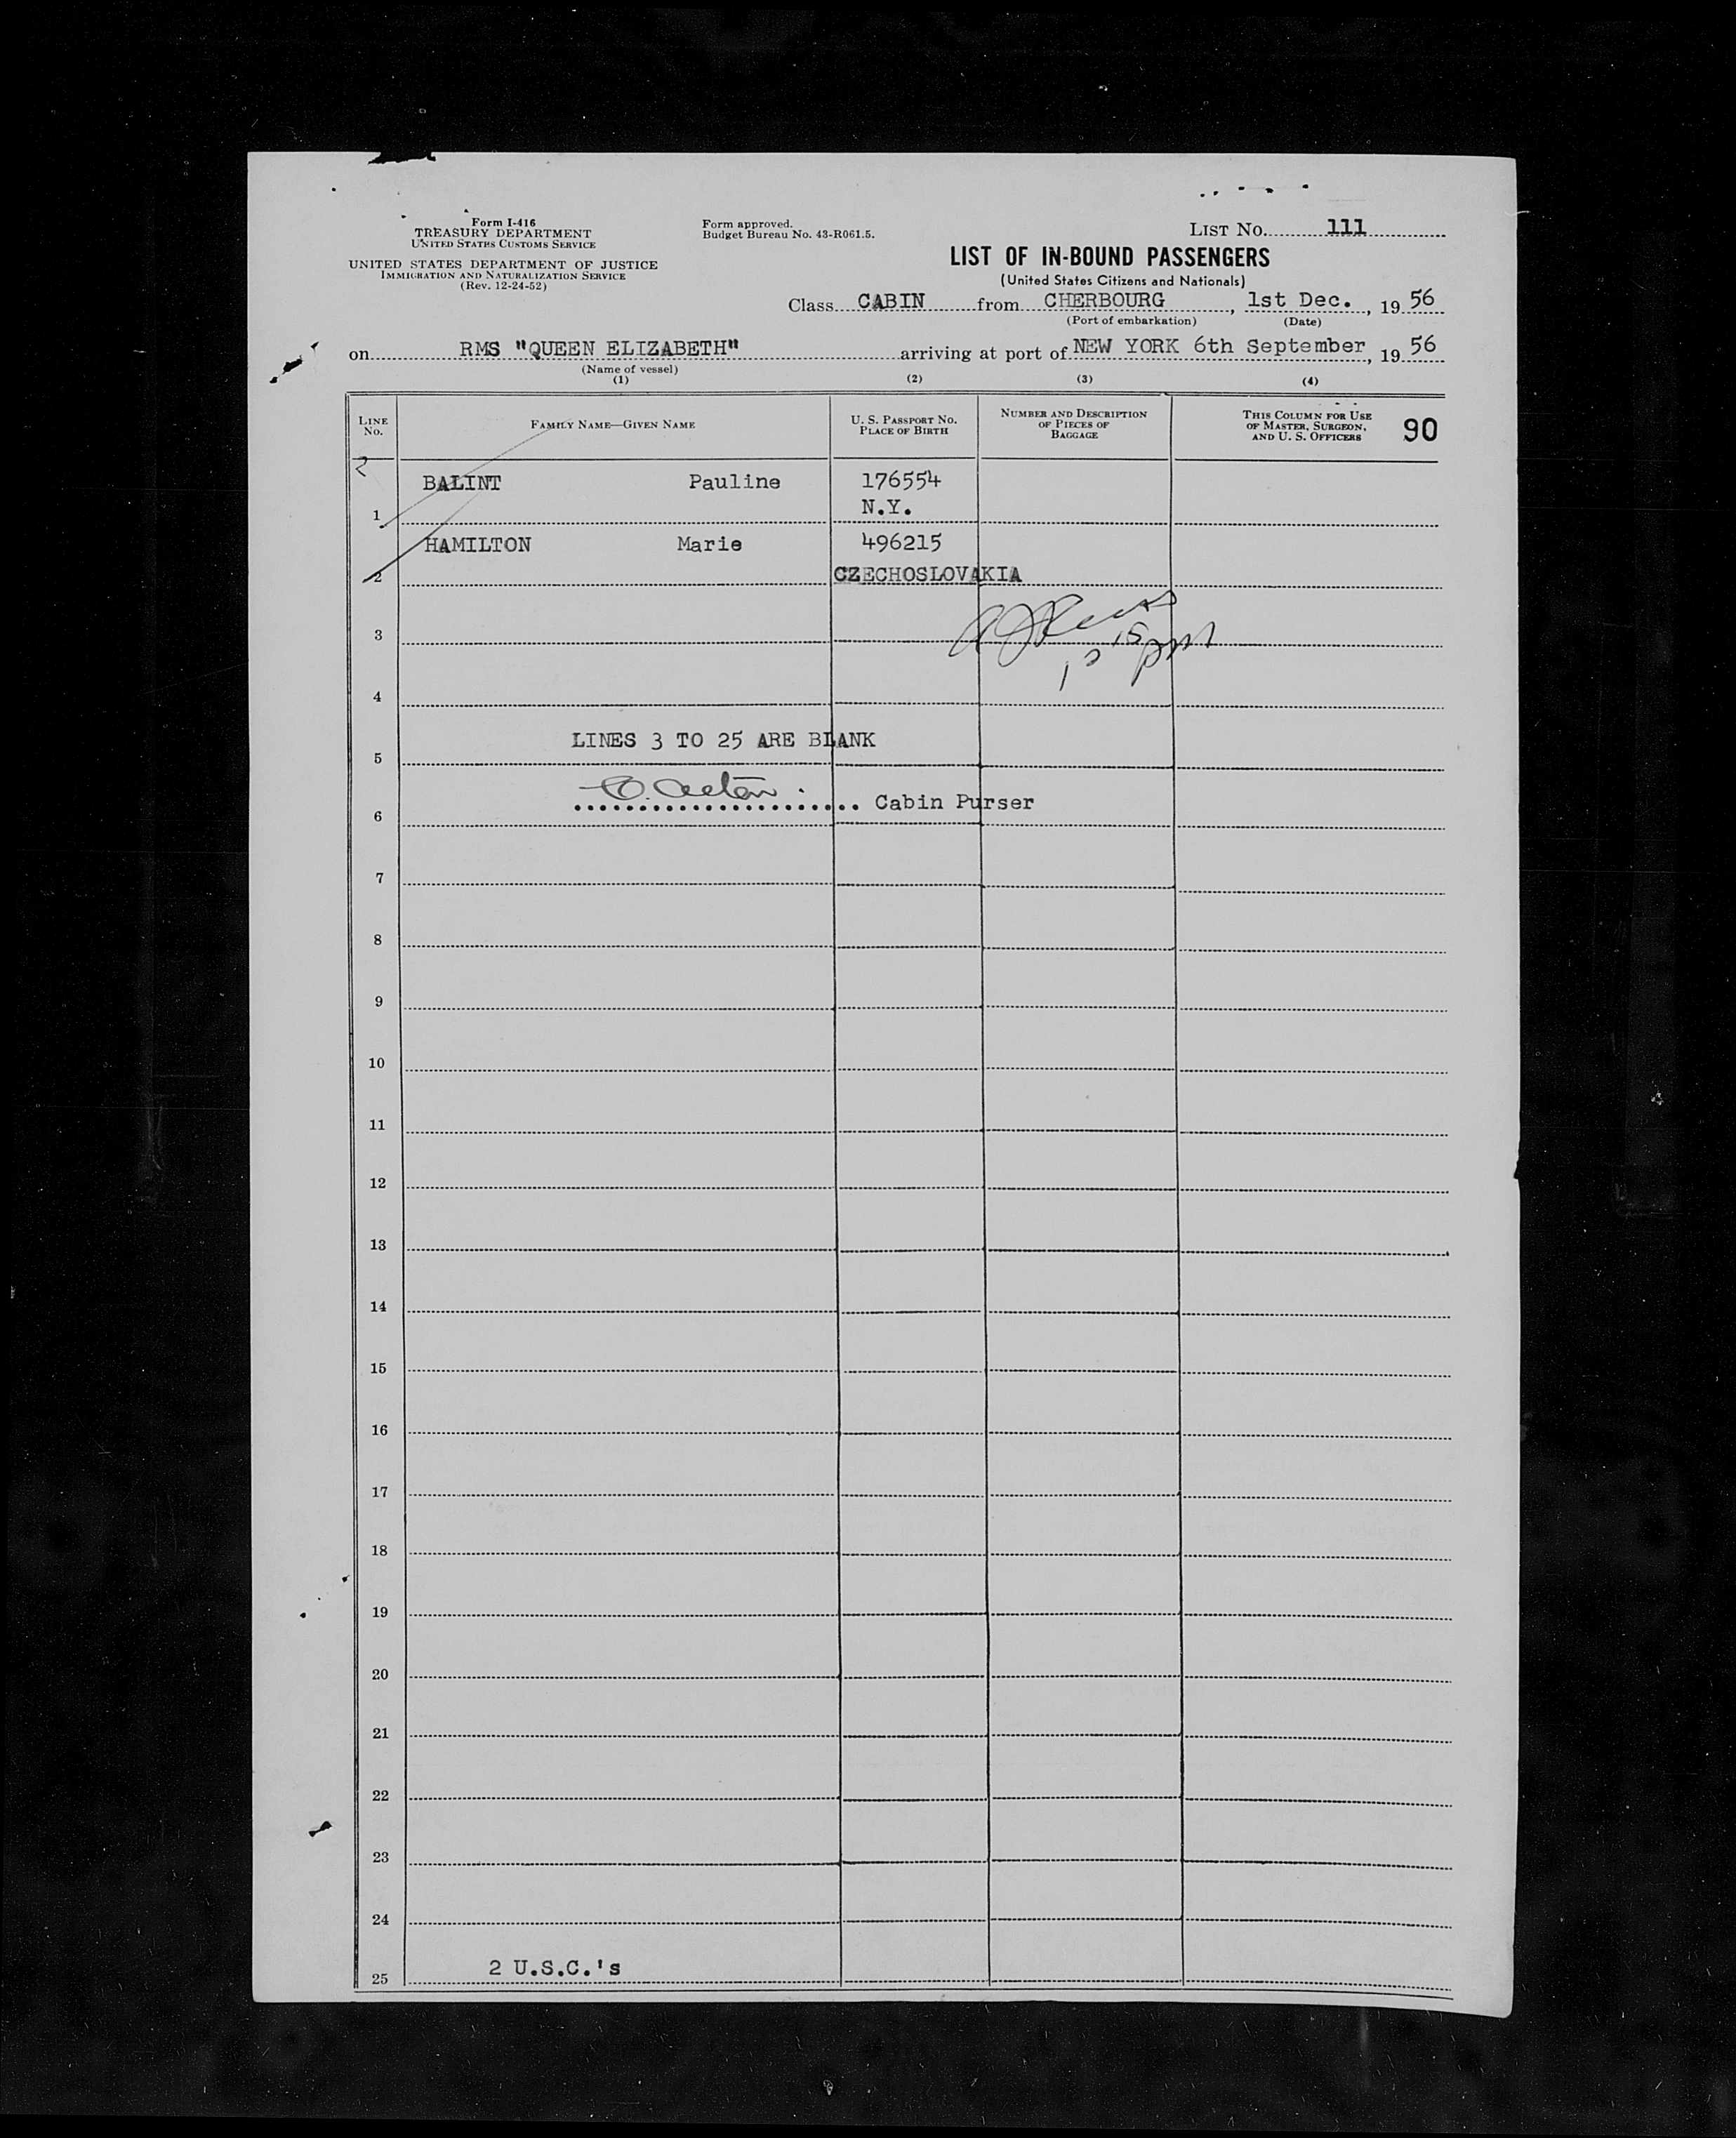 Form I-416
TREASURY DEPARTMENT
UNITED STATES CUSTOMS SERVICE
UNITED STATES DEPARTMENT OF JUSTICE
IMMIGRATION AND NATURALIZATION SERVICE
(Rev. 12-24-52)
Form approved.
Budget Bureau No. 43-R061.5.
LIST No. 111
LIST OF IN-BOUND PASSENGERS
(United States Citizens and Nationals)
Class CABIN from CHERBOURG, 1st Dec., 19 56
(Port of embarkation) (Date)
on RMS "QUEEN ELIZABETH" arriving at port of NEW YORK 6th September, 19 56
(Name of vessel)
(1) (2) (3) (4)
LINE No. FAMILY NAME—GIVEN NAME U. S. PASSPORT No. PLACE OF BIRTH NUMBER AND DESCRIPTION OF PIECES OF BAGGAGE THIS COLUMN FOR USE OF MASTER, SURGEON, AND U. S. OFFICERS 90
2
BALINT Pauline 176554
1 N.Y.
HAMILTON Marie 496215
2 CZECHOSLOVAKIA
3
4
LINES 3 TO 25 ARE BLANK
5
Cabin Purser
6
7
8
9
10
11
12
13
14
15
16
17
18
19
20
21
22
23
24
2 U.S.C.'s
25